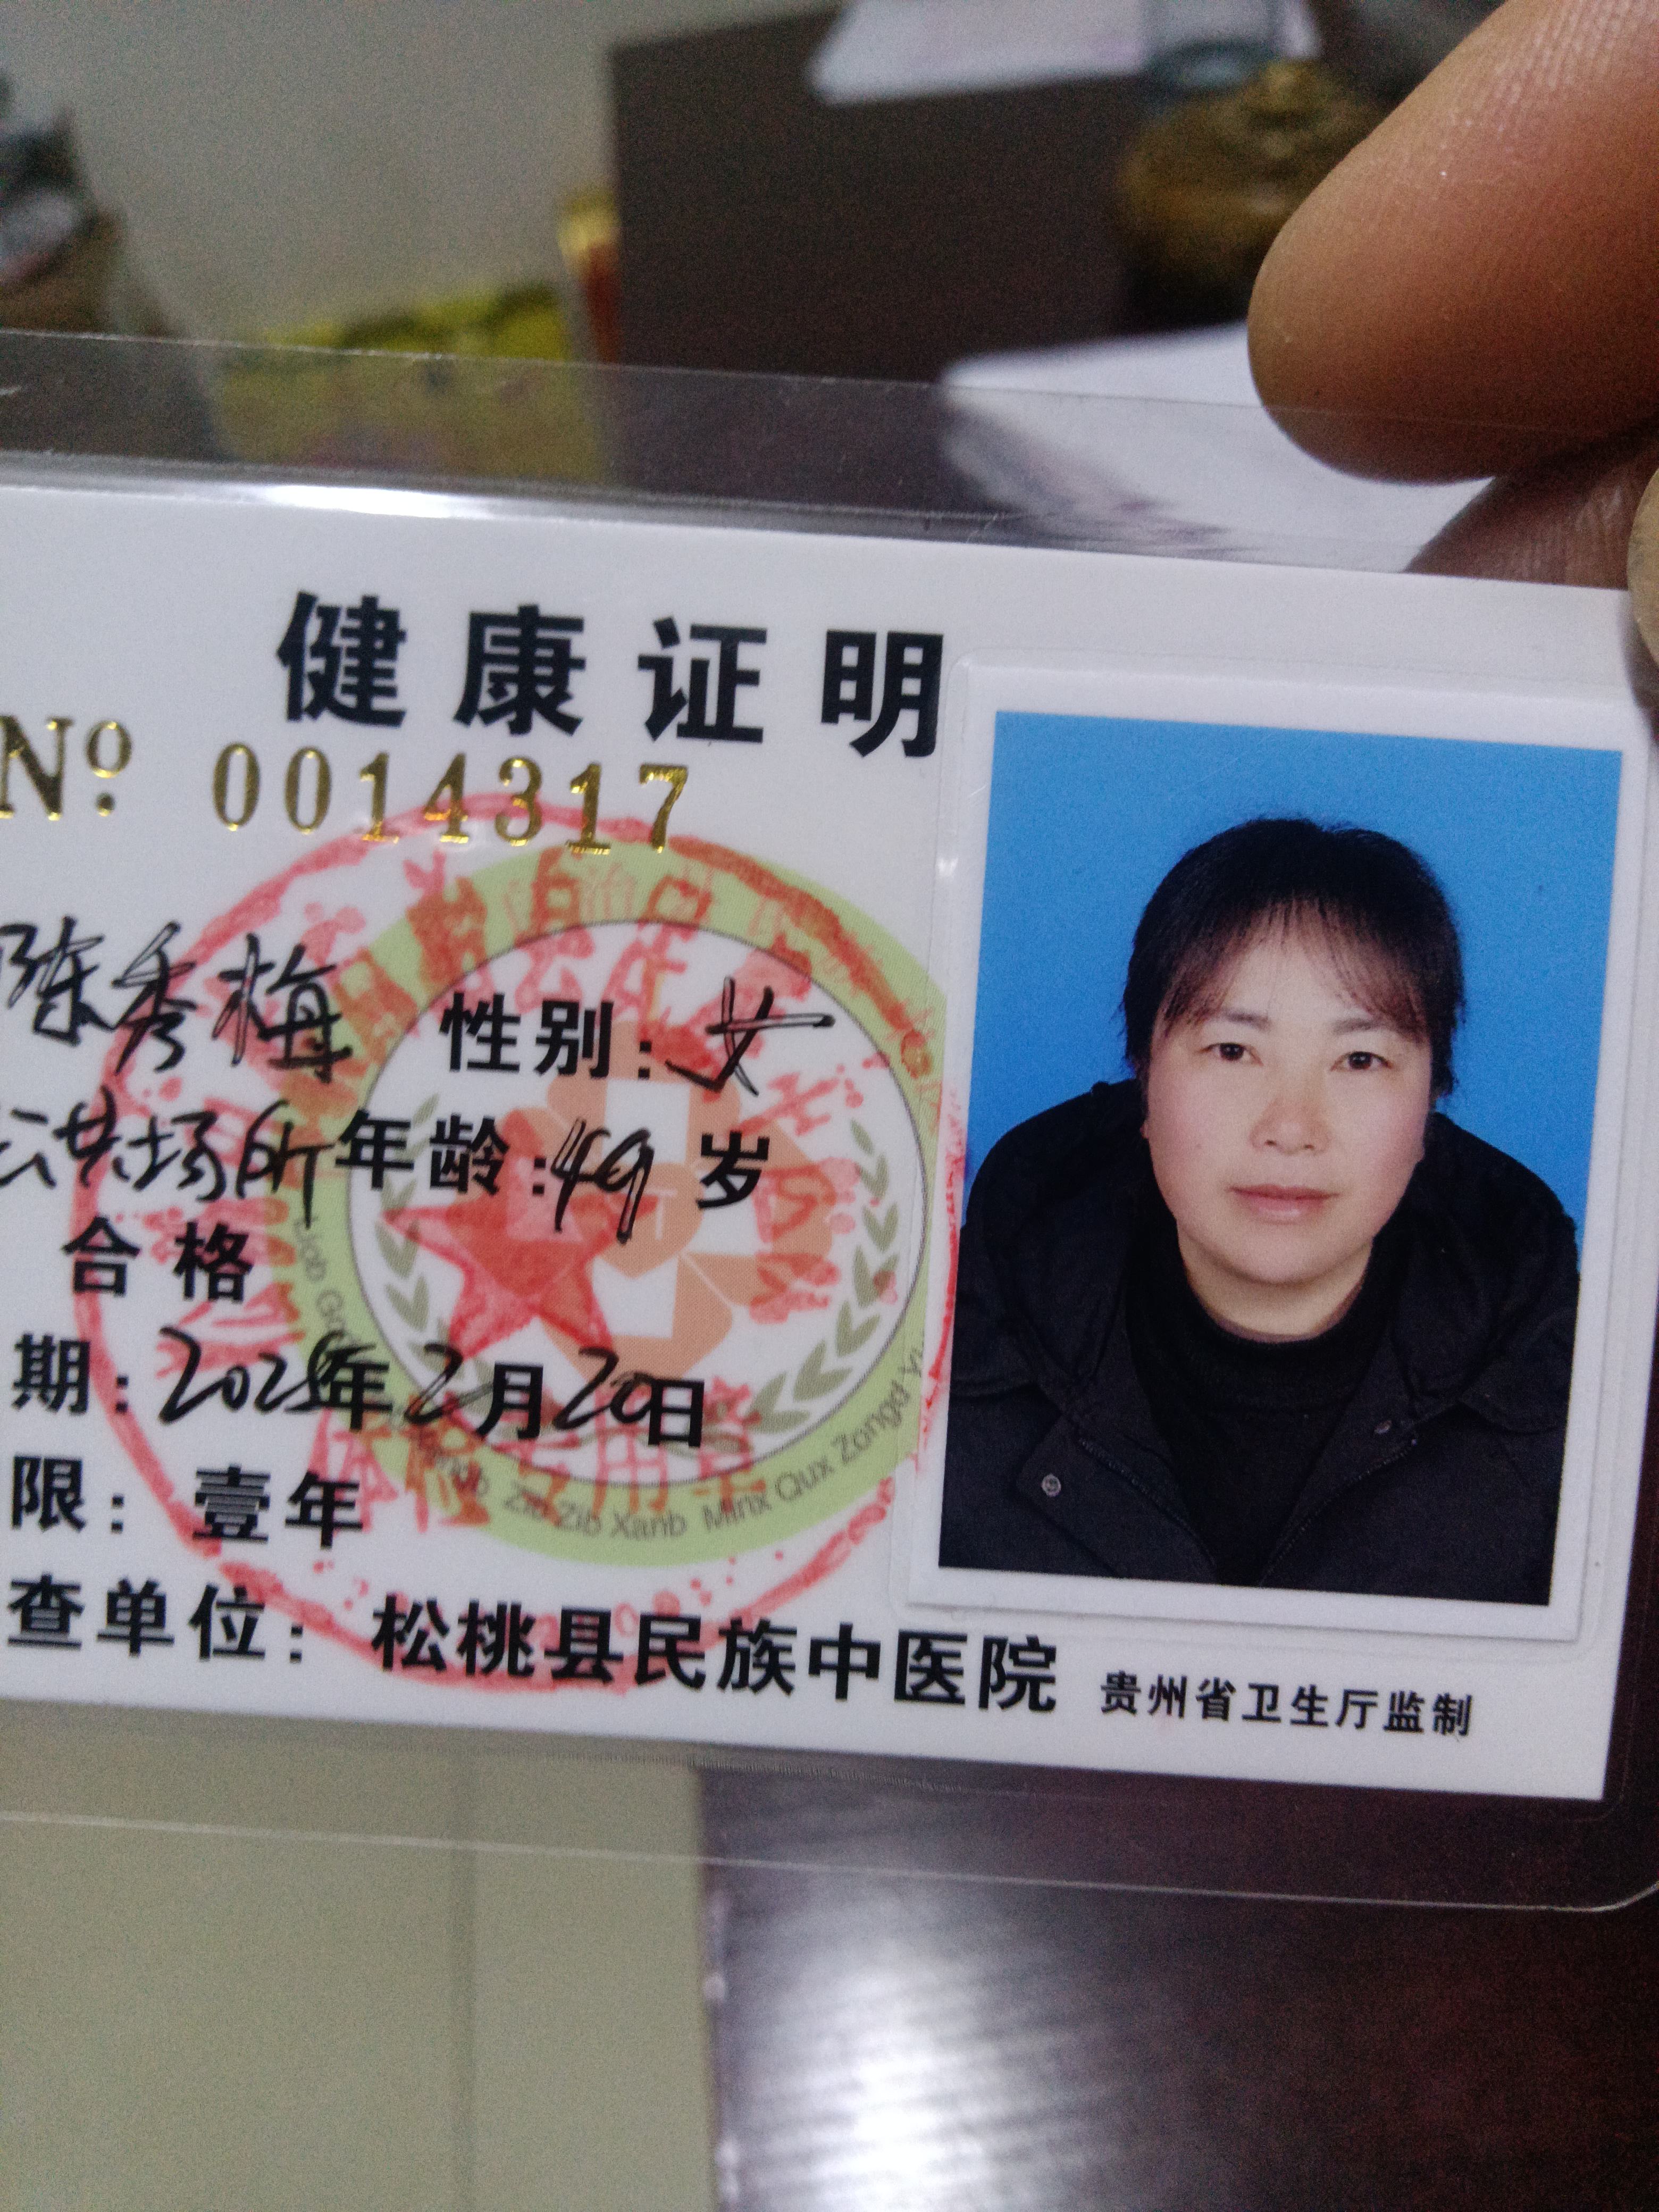 健康证明
Nº 0014317
陈秀梅 性别：女
公共场所 年龄：49 岁
合格
期：2025年2月20日
限：壹年
查单位：松桃县民族中医院
贵州省卫生厅监制
体检专用章
Zib Zib Xanb Minx Qux Zongd